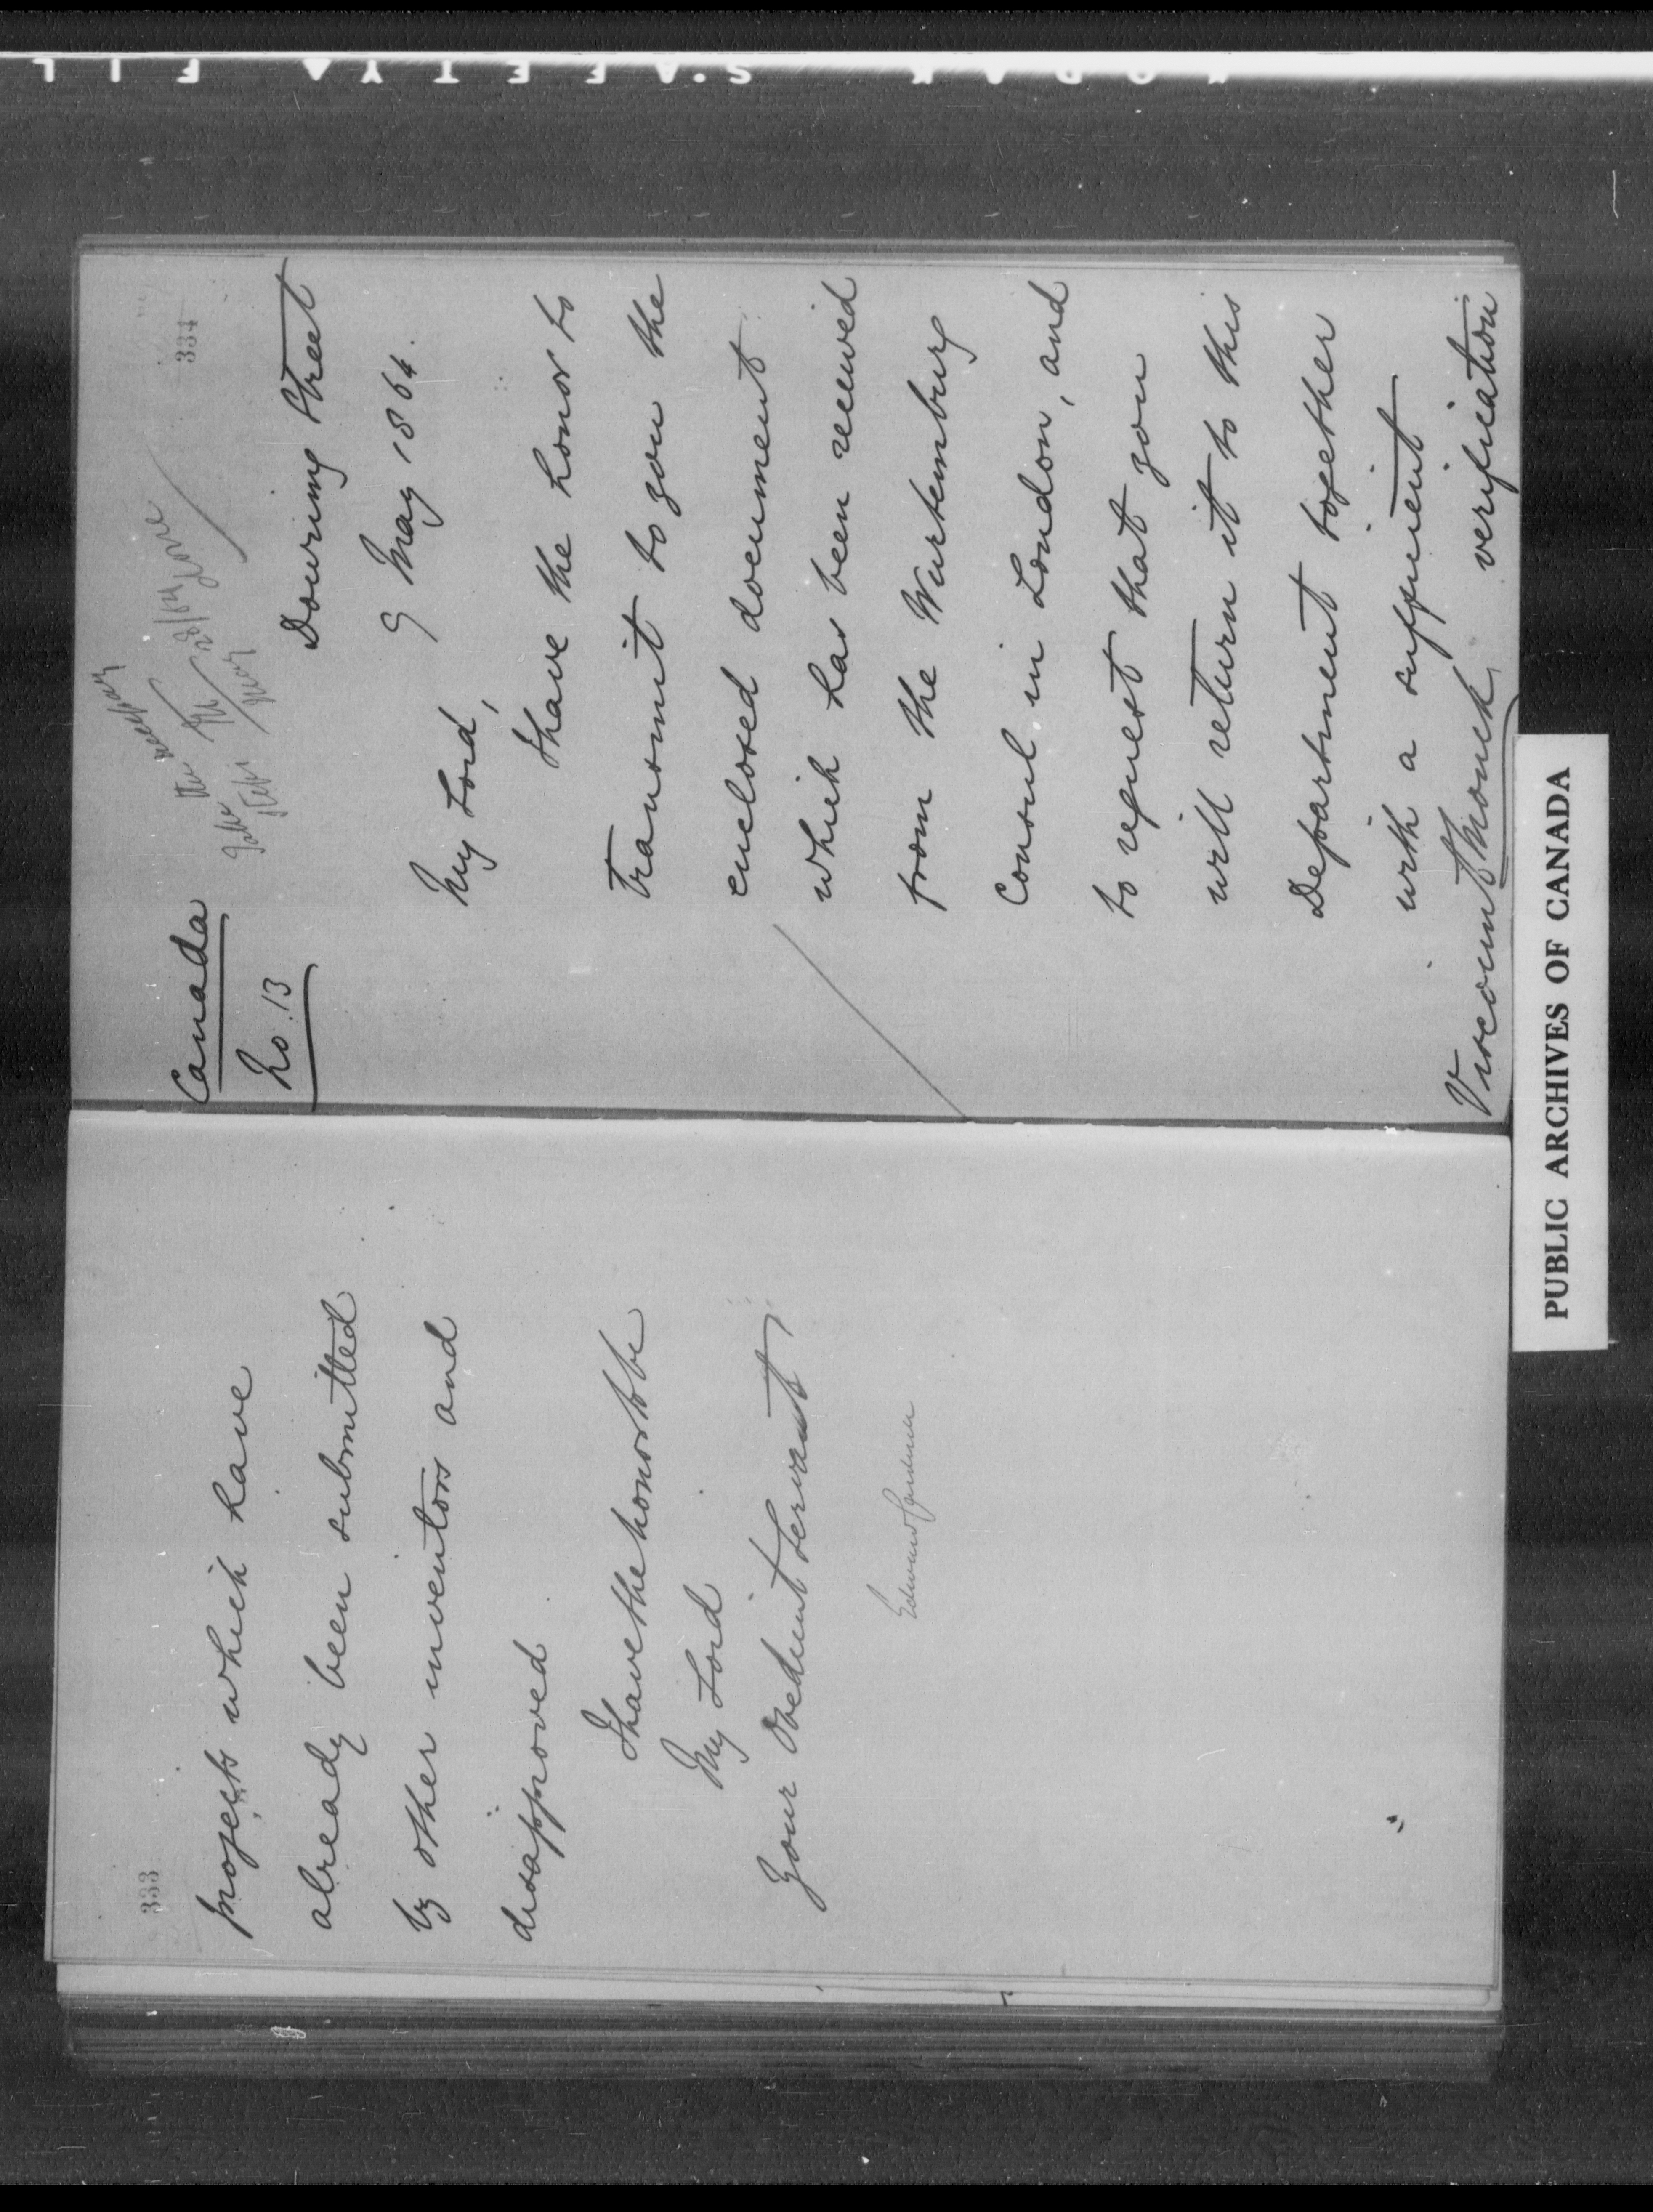 333
projects which have
already been submitted
by other inventors and
disapproved
I have the honor to be
My Lord
Your Obedient Servant
Edward Cardwell
334
Canada
No. 13
Take the necessary
steps
28/64
May
Done
Downing Street
9 May 1864.
My Lord,
I have the honor to
transmit to you the
enclosed document
which has been received
from the Wurtemburg
Consul in London, and
to request that you
will return it to this
Department together
with a sufficient
verification
Viscount Monck
PUBLIC ARCHIVES OF CANADA
KODAK SAFETY FIL